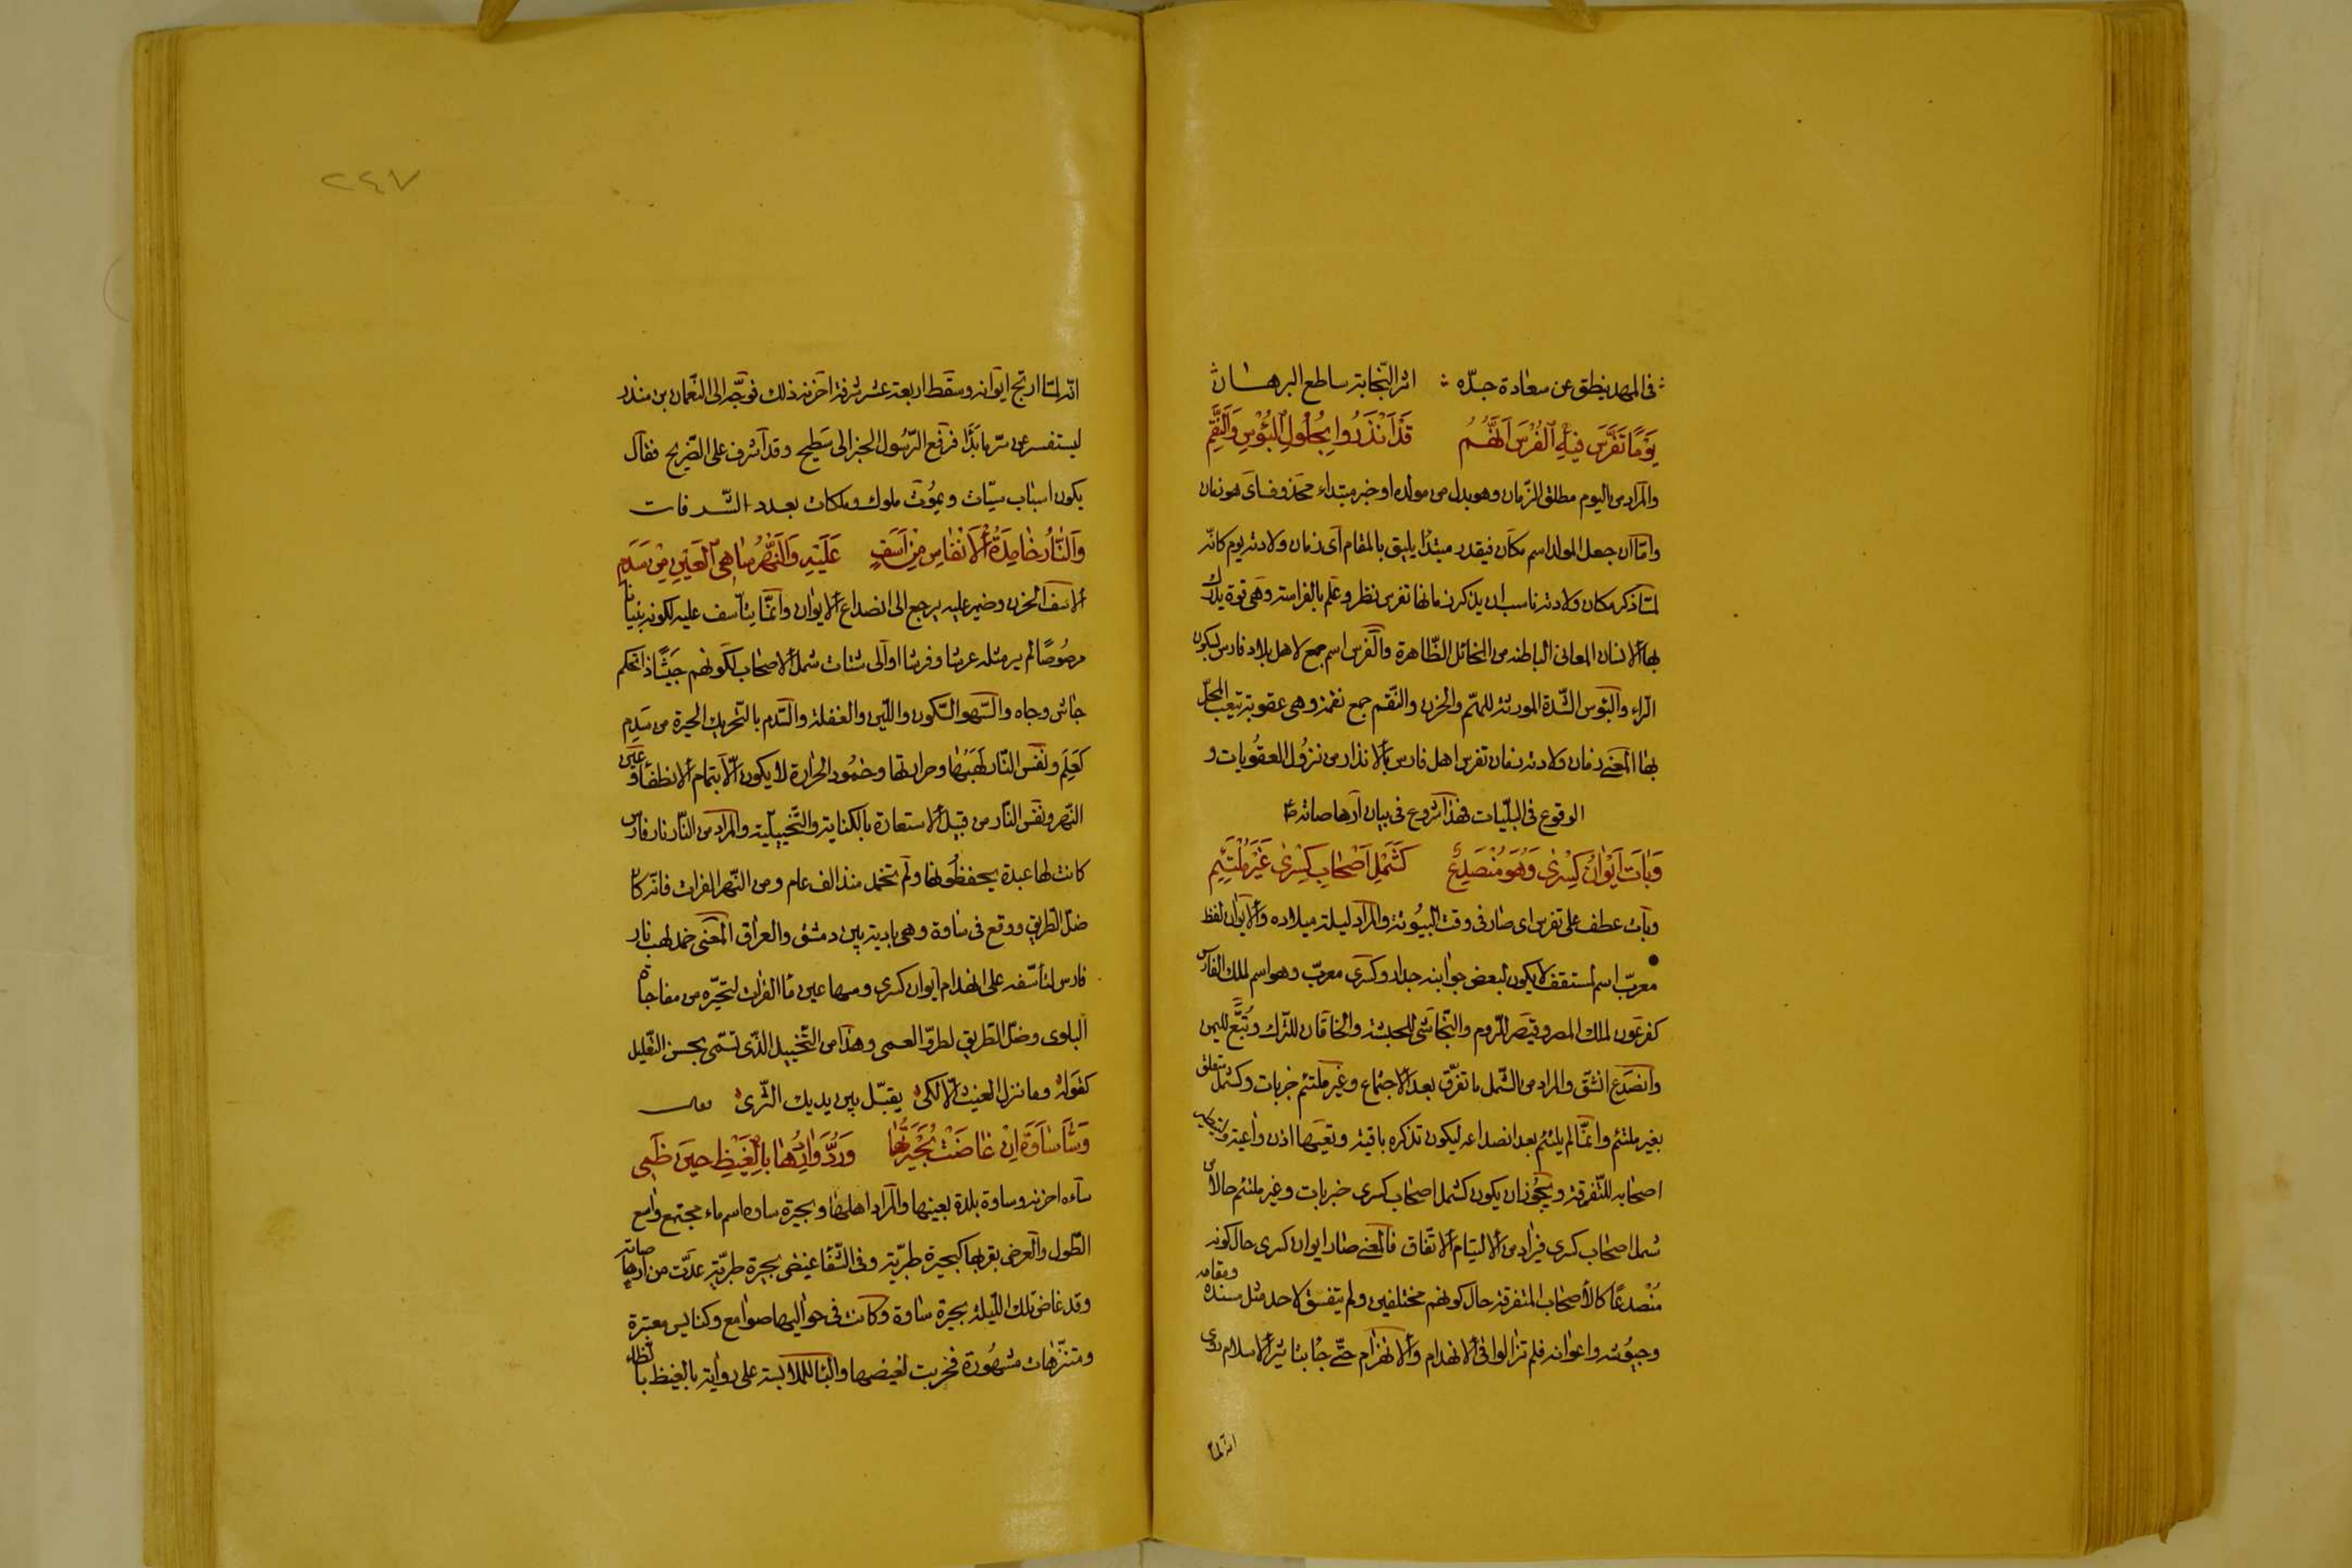 في المهد ينطق عن سعادة جدّه اثر النّجابة ساطع البرهان
يَوْمًا تَفَرَّسَ فِيهِ الْفُرْسُ اَنَّهُمُ قَدْ اُنْذِرُوا بِحُلُولِ الْبُؤْسِ وَالنِّقَمِ
والمراد من اليوم مطلق الزّمان وهو بدل من مولده او خبر مبتداء محذوف اى هو زمان
وامّا ان جعل المولد اسم مكان فيقدر مبتدأ يليق بالمقام اى زمان ولادته يوم كانّه
لمّا ذكر مكان ولادته ناسب ان يذكر زمانها تفرس نظر وعلم بالفراسته وهى قوة يدرك
بها الانسان المعانى الباطنه من المخائل الظّاهرة والفرس اسم جمع لاهل بلاد فارس بسكون
الرّاء والبؤس الشّدة المورثة للهمّ والحزن والنّقم جمع نقمة وهى عقوبة يتعب المحلّ
بها المعنى زمان ولادته زمان تفرس اهل فارس بالانذار من نزول العقوبات و
الوقوع فى البليّات فهذا شروع فى بيان ارهاصاته
وَبَاتَ اَيْوَانُ كِسْرٰى وَهُوَ مُنْصَدِعٌ كَشَمْلِ اَصْحَابِ كِسْرٰى غَيْرَ مُلْتَئِمِ
وبات عطف على تفرس اى صار فى وقت البيوتة والمراد ليلة ميلاده والايوان لفظ
معرّب اسم لمستقف لا يكون لبعض جوانبه جدار وكسرى معرّب وهو اسم لملك الفارس
كفرعون لملك المصر وقيصر للرّوم والنّجاشى للحبشة والخاقان للترك وتُبّع لليمن
وانصدع انشقّ والمراد من الشّمل ما تفرّق بعد الاجتماع وغير ملتئم خبر بات وكشمل متعلق
بغير ملتئم وانّما لم يلتئم بعد انصداعه ليكون تذكره باقية وتعيها اذن واعية
اصحابه للتّفرقة ويجوز ان يكون كشمل اصحاب كسرى خبر بات وغير ملتئم حالا من
شمل اصحاب كسرى فيراد من الالتيام الاتفاق فالمعنى صار ايوان كسرى حال كونه
مُنْصدعًا كالاصحاب المتفرقة حال كونهم مختلفين ولم يتفسق لاحد مثل مسنده ومقامه
وجيوشه واعوانه فلم تزالوا فى الانهدام والانهزام حتّى جا بتاثير الاسلام روى
انه لما
٢٤٧
انّه لمّا ارتج ايوانه وسقط اربعة عشر شرفة احزنه ذلك فوجّه الى النّعمان بن منذر
ليستفسر عن سرّ ما بَدَا فرفع الرّسول الخبر الى سَطيح وقد اشرف على الضّريح فقال
يكون اسباب سيّات ويموت ملوك وملكات بعدد الشّرفات
وَالنَّارُ خَامِدَةُ الْاَنْفَاسِ مِنْ اَسَفٍ عَلَيْهِ وَالنَّهْرُ سَاهِى الْعَيْنِ مِنْ سَدَمِ
الاسف الحزن وضمير عليه يرجع الى انصداع الايوان وانّما يتأسف عليه لكونه بنيانا
مرصُوصًا لم ير مثله عرشا وفرشا او الى شتات شمل الاصحاب لكونهم جَيْشًا ذا تحكم
جاش وجاه والسّهو السّكون واللّين والغفلة والسّدم بالتّحريك الحيرة من سَدِم
كَعَلِمَ ونفس النّار لهبُها وحرارتها وخمُود الحرارة لا يكون الّا بتمام الانطفاء وعين
النّهر ونفس النّار من قبيل الاستعارة بالكناية والتّخييليّة والمراد من النّار نار فارس
كانت لها عبدة يحفظونها ولم تخمد منذ الف عام ومن النّهر الفرات فانّه كان
ضلّ الطريق ووقع فى ساوة وهى بادية بين دمشق والعراق المعنى خمد لهب نار
فارس لتأسّفه على انهدام ايوان كسرى وسها عين ماء الفرات لتحيّره من مفاجأة
البلوى وضلّ الطريق لطروّ العمى وهذا من التّخييل الذّى تسمّى بحسن التّعليل
كقوله وما نزل الغيث الّا لكى يقبّل بين يديك الثّرى
وَسَاءَ سَاوَةَ اِنْ غَاضَتْ بُحَيْرَتُهَا وَرُدَّ وَارِدُهَا بِالْغَيْظِ حِينَ ظَمِى
ساءه احزنه وساوة بلدة بعينها والمراد اهلها وبحيرة ساوه اسم ماء مجتمع واسع
الطّول والعرض بقربها كبحيرة طبريّة وفى الشّفا غيض بحيرة طبريّة عدّت من ارهاصاته
وقد غاض تلك اللّيلة بحيرة ساوة وكانت فى حواليها صوامع وكنايس معتبرة
ومتنزّهات مشهُورة فخربت لغيضها والبا للملابسة على رواية بالغيظ بالظاء